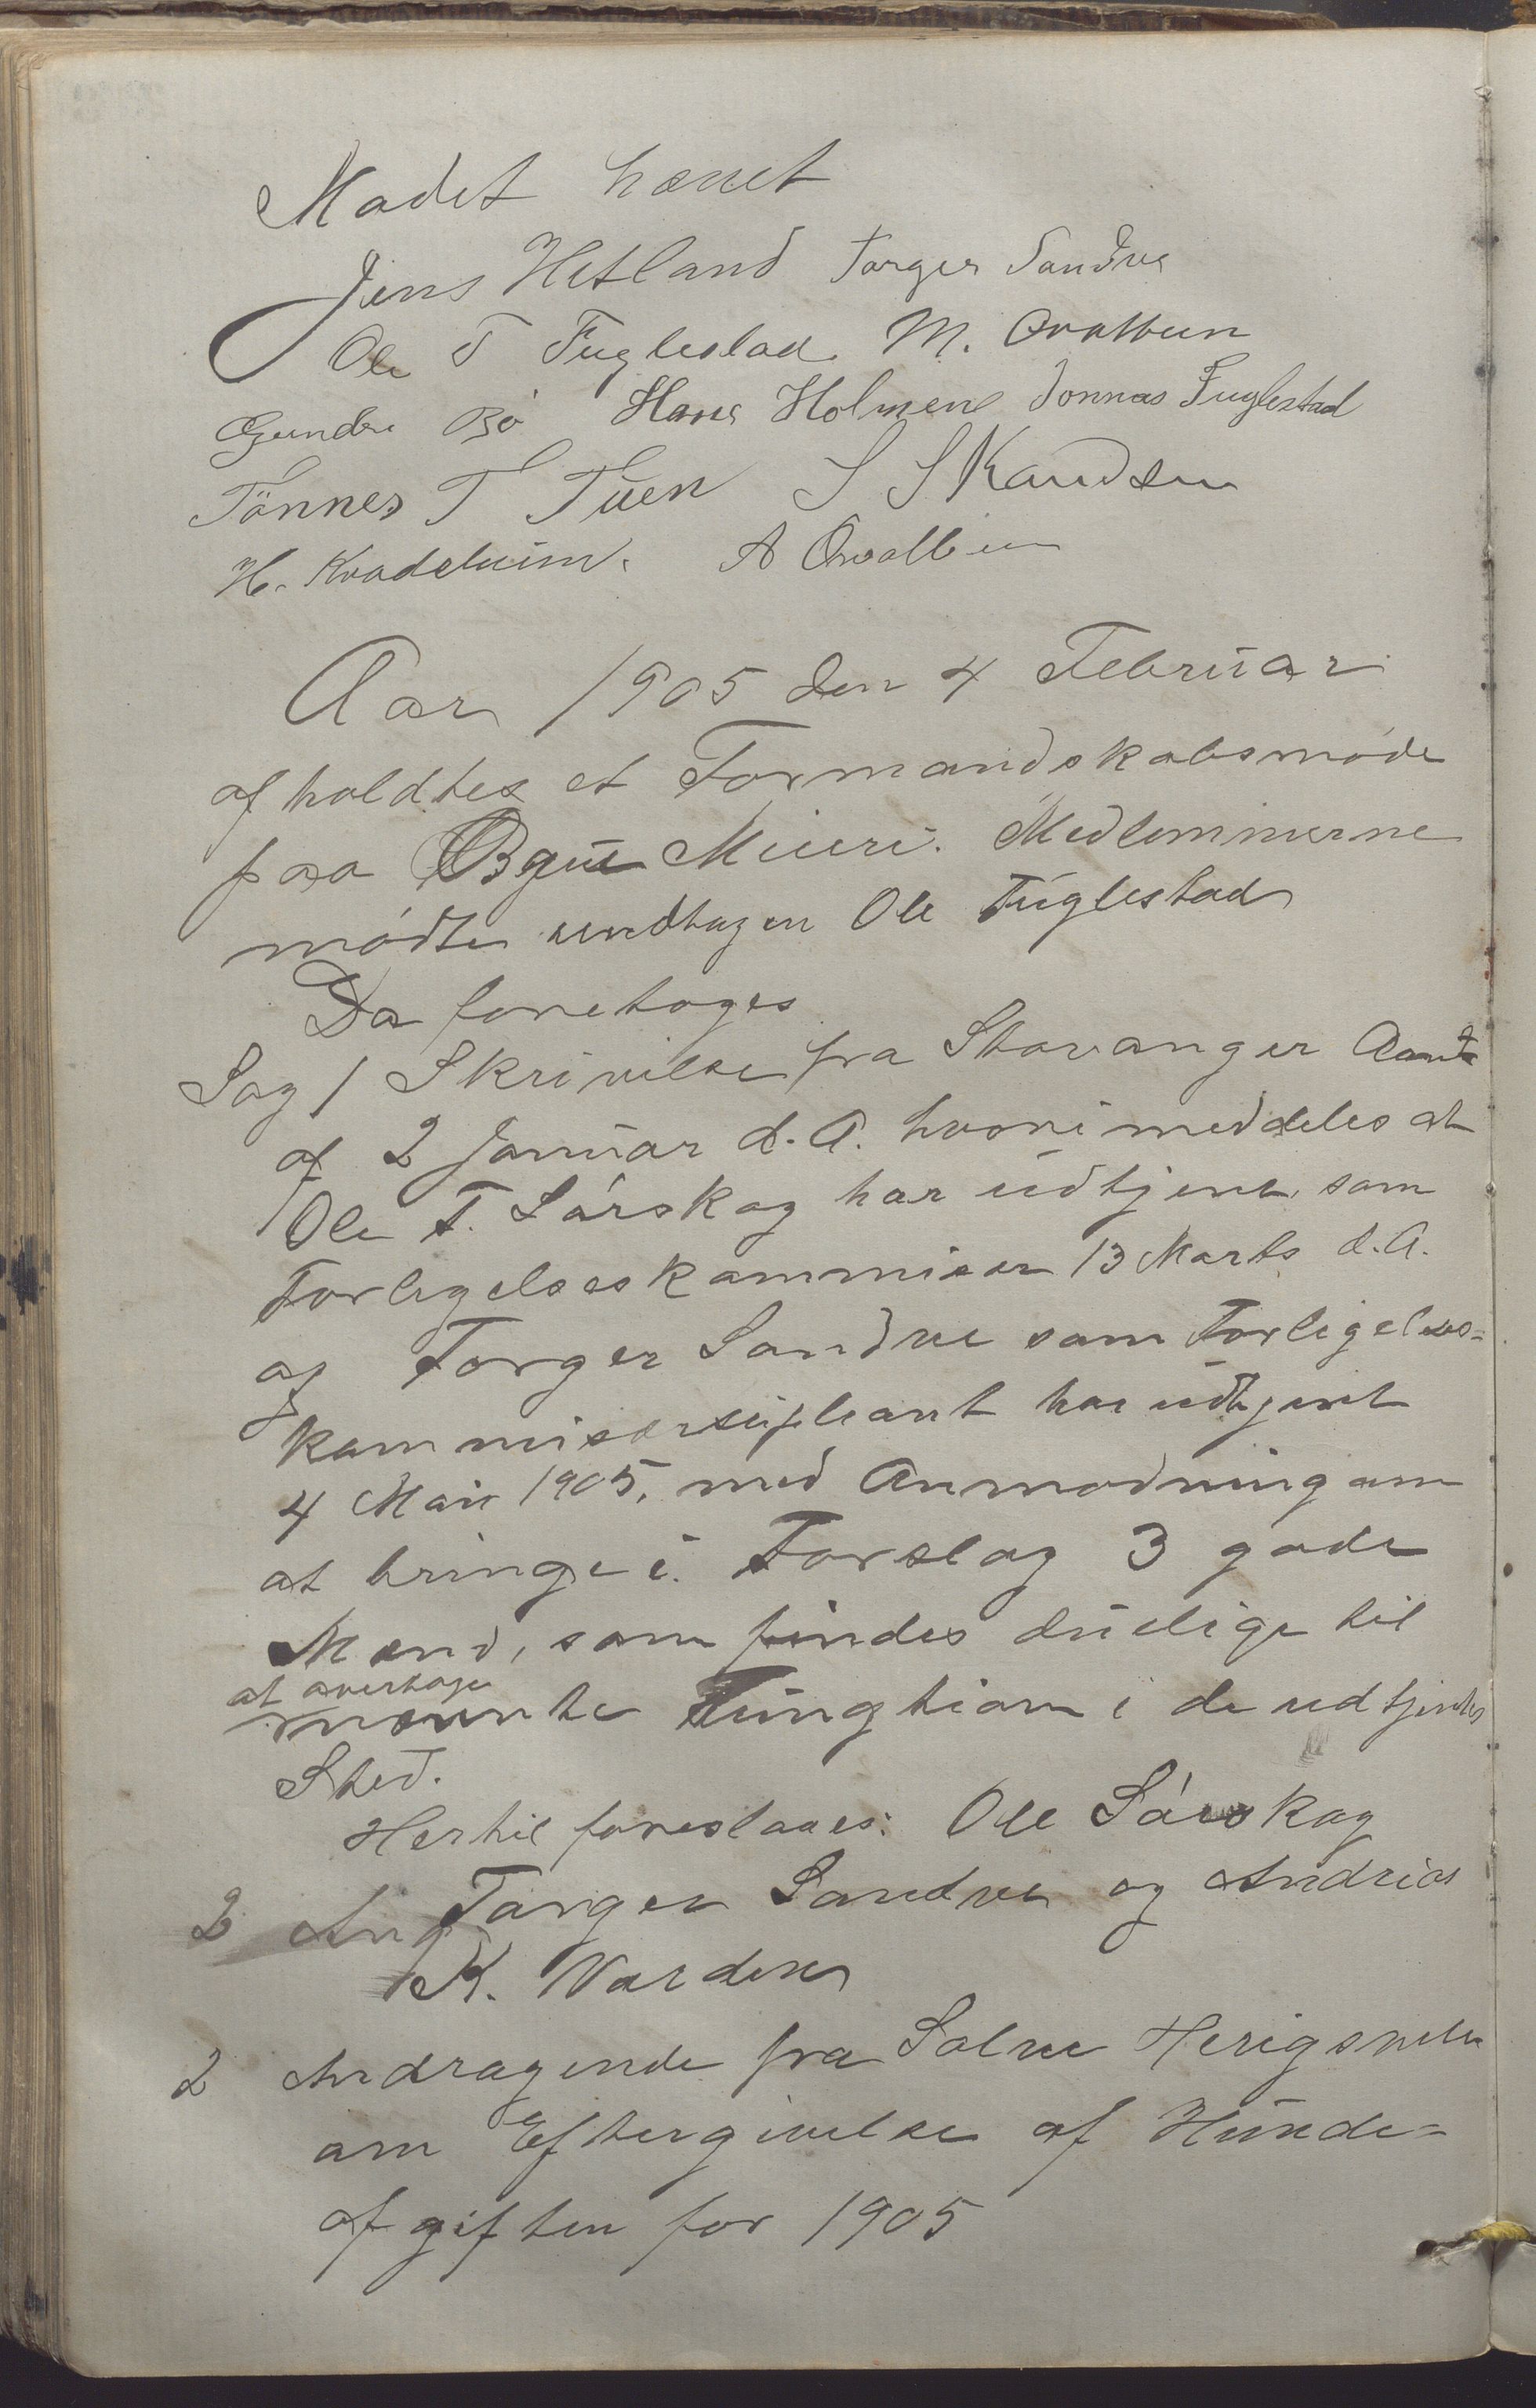 Mødet hævet
Jens Hetland Torger Sandve
Ole T Fuglestad. M. Qvalbein
Gunder Bø Hans Holmene Tonnas Fuglestad
Tönnes T Tuen S S Knudsen
H. Kvadsheim. A Qvalbein
Aar 1905 den 4 Februar
afholdtes et Formandskabsmøde
paa Bgue Mieri. Medlemmerne
mødte undtagen Ole Fuglestad
Da foretoges
Sag 1 Skrivelse fra Stavanger Amt
af 2 Januar d.A. hvori meddeles at
Ole T. Sørskog har udtjent som
Forligelseskommisær 13 Marts d.A.
og Torger Sandve som Forligelses=
kommisærsupleant har udtjent
4 Mai 1905, med Anmodning om
at bringe i Forslag 3 gode
Mænd, som findes duelige til
at overtage
Fungtion i de udtjentes
Sted.
Hertil foreslaaes: Ole Sørskog
2 And Torger Sandve og Andreas
K. Varden
2 Andragende fra Salve
om Eftergivelse af Hunde=
afgiften for 1905